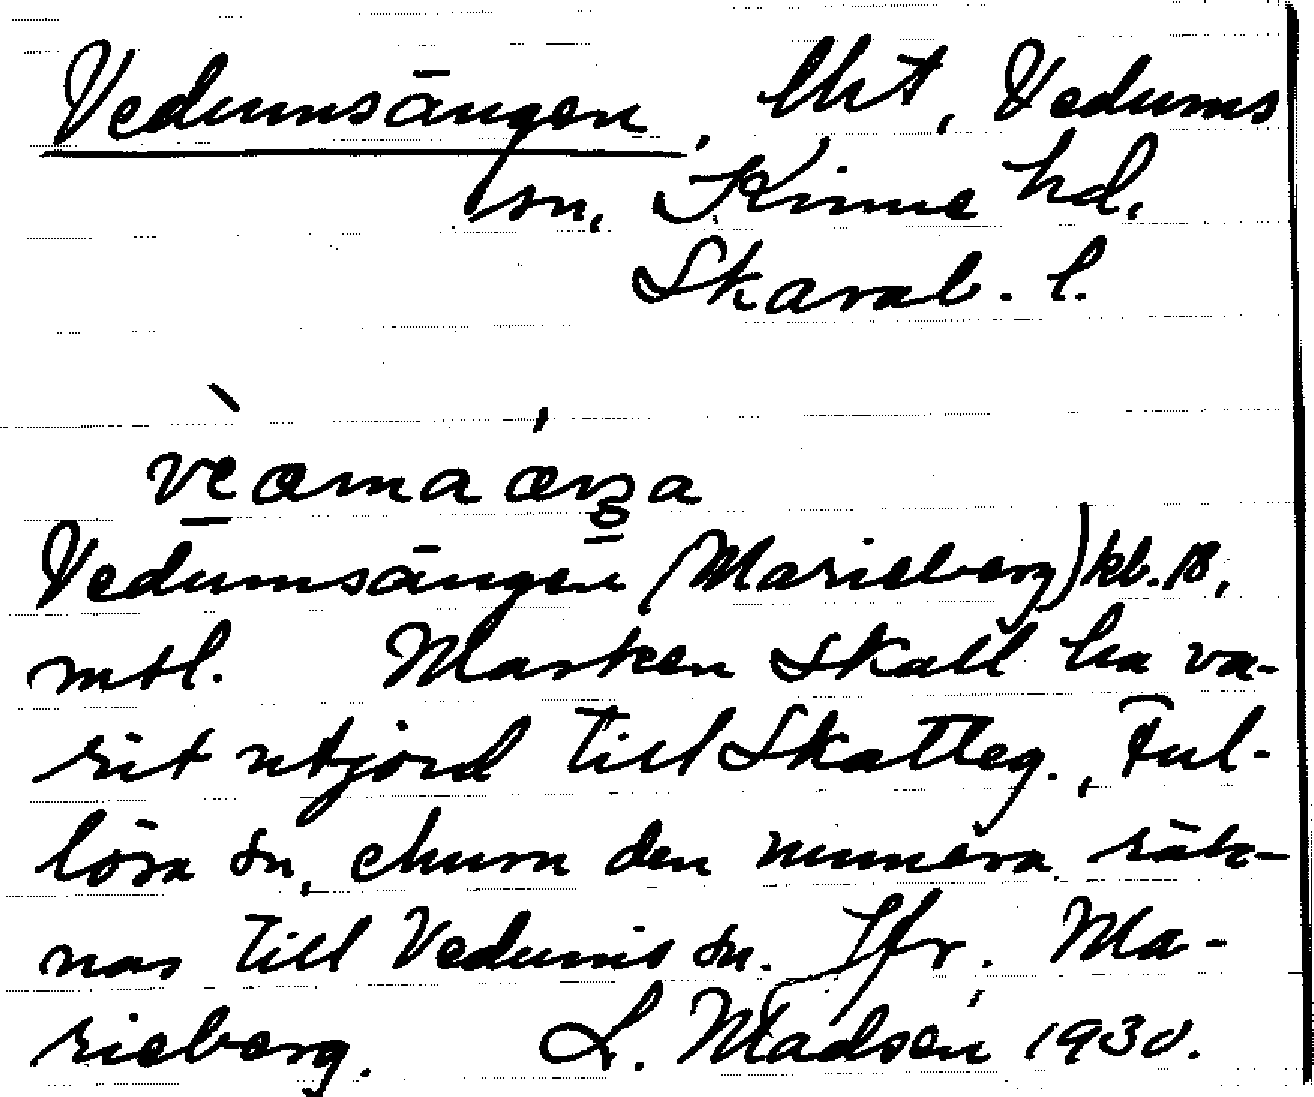 Vedumsängen, lht, Vedums
sn, Kinne hd,
Skarab. l.
Vedumsängen (Marieberg) kb. B,
mtl. Marken skall ha va-
rit utjord till Skatteg., Ful-
lösa sn, ehuru den numera räk-
nas till Vedums sn. Jfr. Ma-
rieberg. L. Madsén 1930.